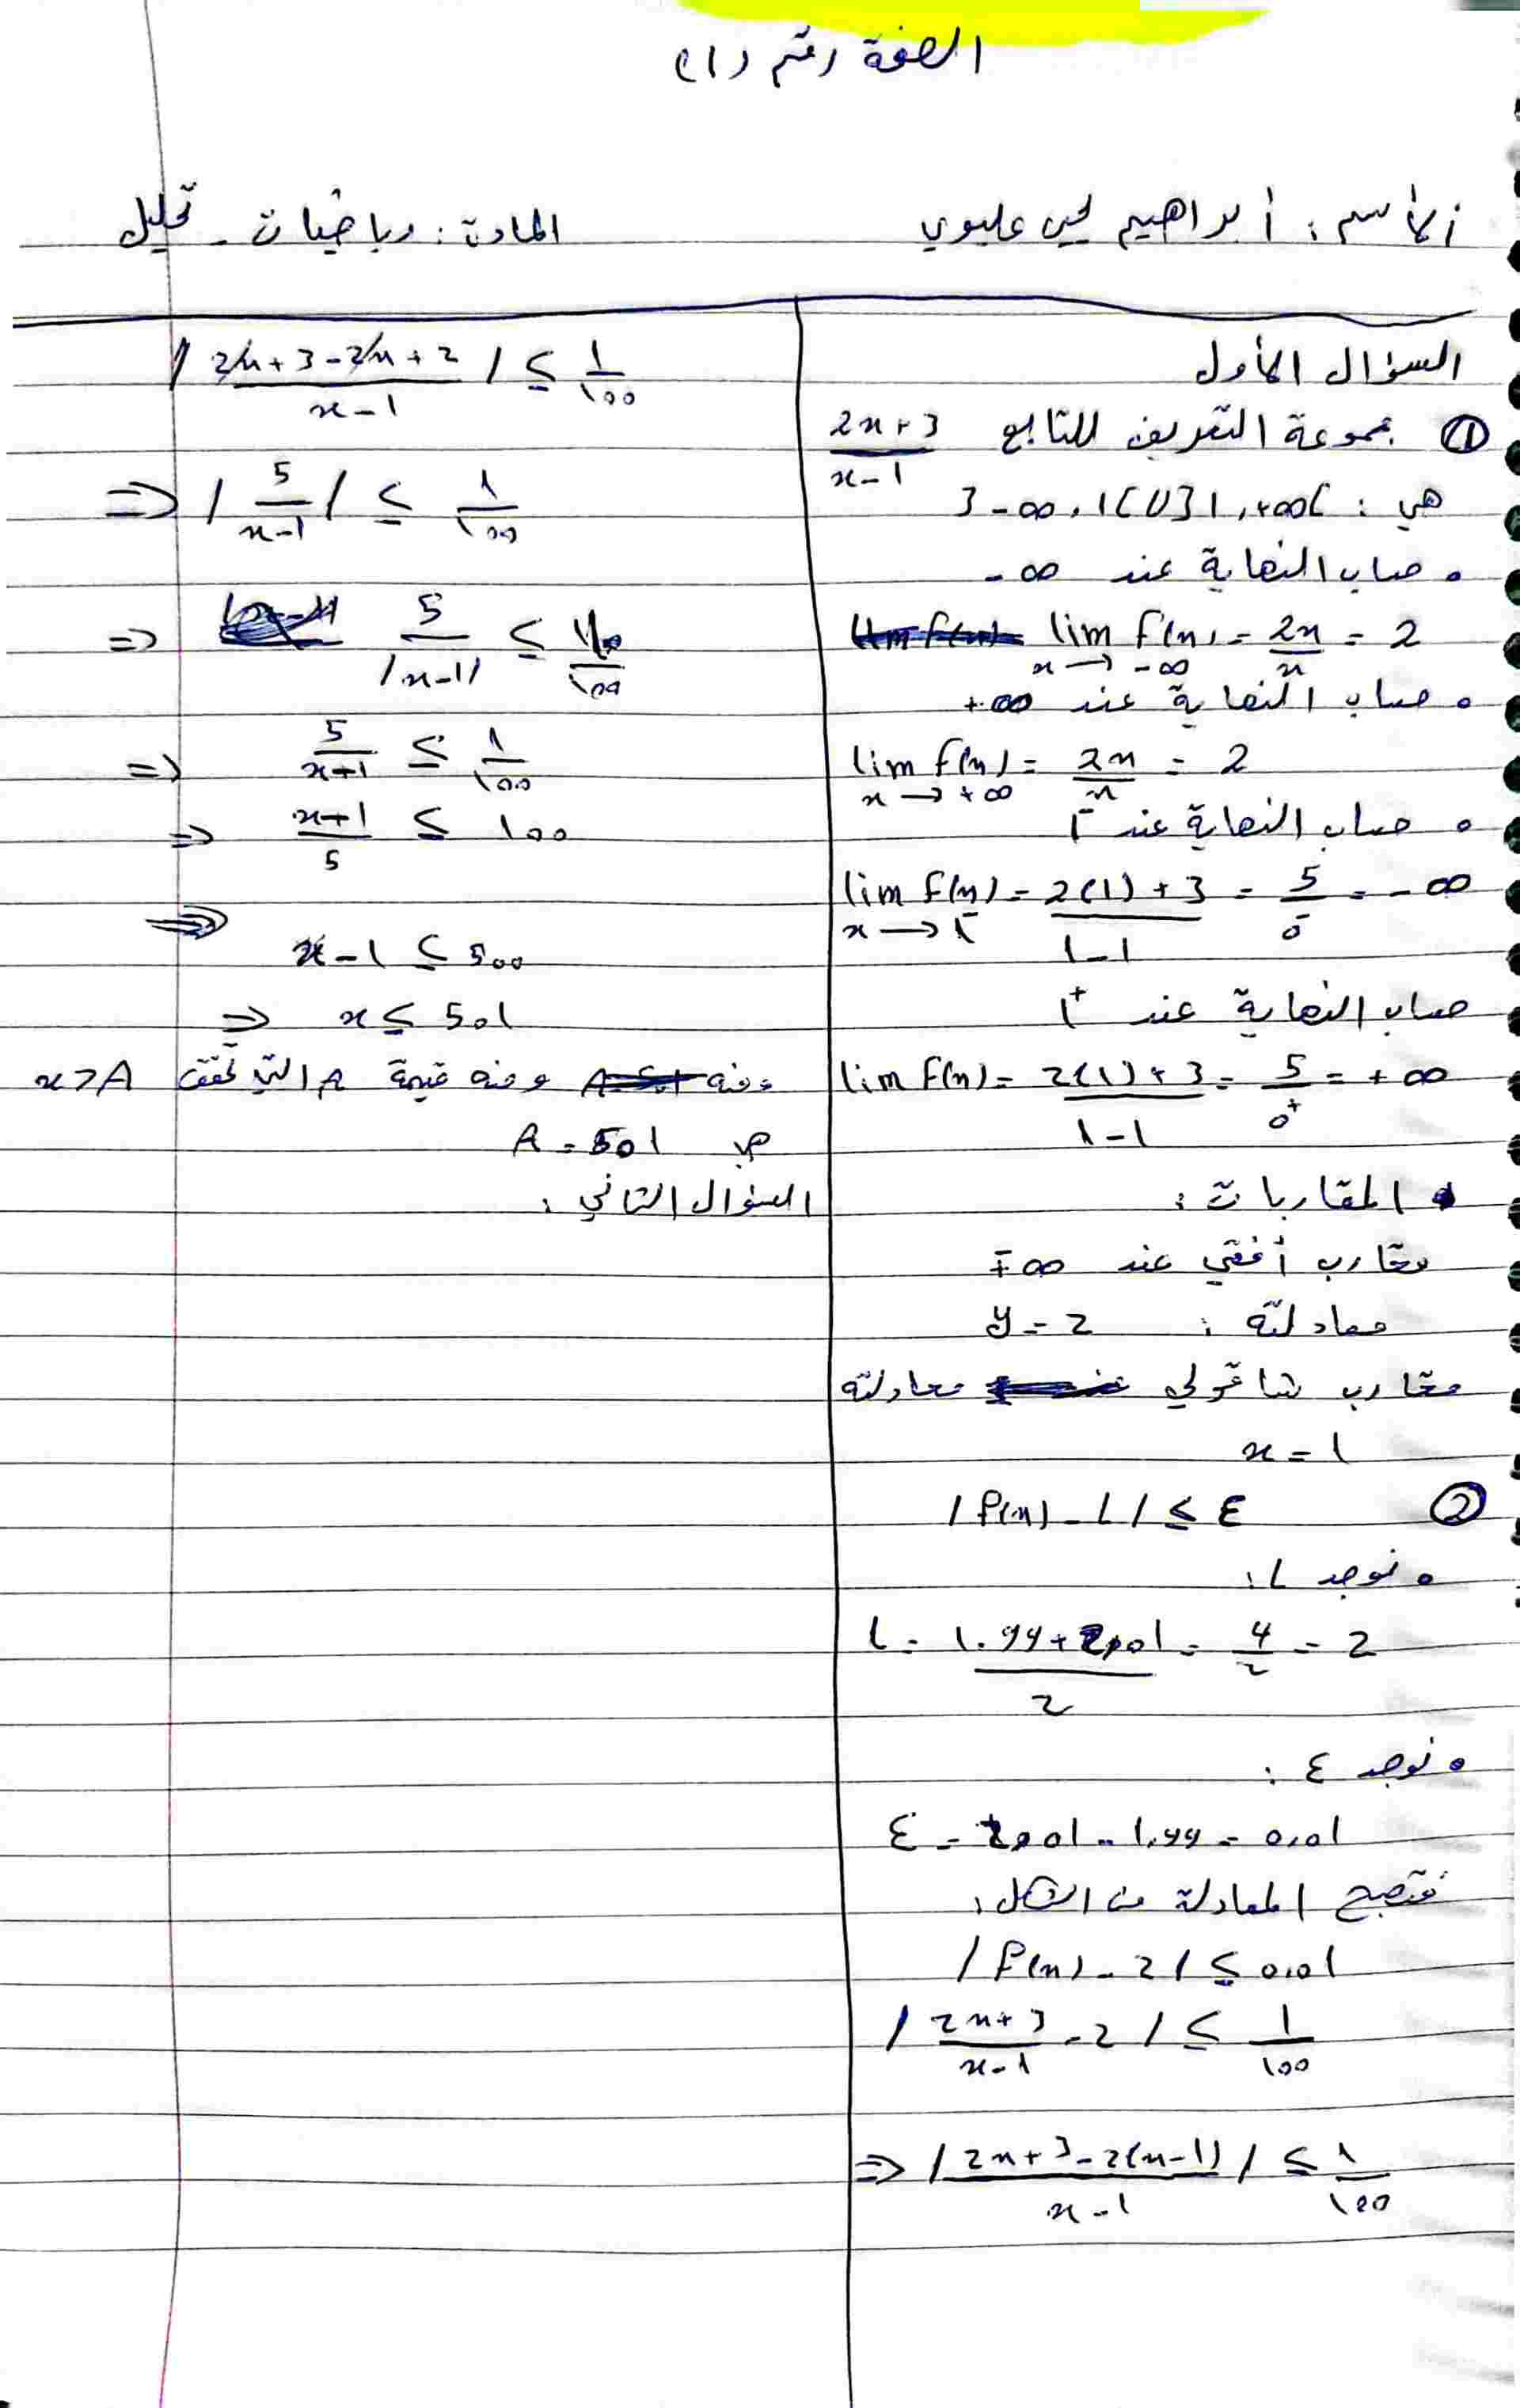 الصفحة رقم (1)
الأسم : أبراهيم يحيى عليوي
المادة : رياضيات - تحليل
السؤال الأول
① مجموعة التعريف للتابع (2x+3)/(x-1)
هي : ]-∞,1[U]1,+∞[
• حساب النهاية عند -∞
lim f(x) = 2x/x = 2
x → -∞
• حساب النهاية عند +∞
lim f(x) = 2x/x = 2
x → +∞
• حساب النهاية عند 1⁻
lim f(x) = (2(1)+3)/(1-1) = 5/0⁻ = -∞
x → 1⁻
حساب النهاية عند 1⁺
lim f(x) = (2(1)+3)/(1-1) = 5/0⁺ = +∞
• المقاربات :
مقارب أفقي عند ∓∞
معادلته : y = 2
مقارب شاقولي معادلته
x = 1
② |f(x) - L| ≤ ε
• نوجد L :
L = (1.99+2.01)/2 = 4/2 = 2
• نوجد ε :
ε = 2.01 - 1.99 = 0.01
فتصبح المعادلة من الشكل :
|f(x) - 2| ≤ 0.01
|(2x+3)/(x-1) - 2| ≤ 1/100
⇒ |(2x+3-2(x-1))/(x-1)| ≤ 1/100
|(2x+3-2x+2)/(x-1)| ≤ 1/100
⇒ |5/(x-1)| ≤ 1/100
⇒ 5/|x-1| ≤ 1/100
⇒ 5/(x+1) ≤ 1/100
⇒ (x+1)/5 ≤ 100
⇒
x-1 ≤ 500
⇒ x ≤ 501
ومنه ومنه قيمة A التي تحقق x>A
هي A = 501
السؤال الثاني :